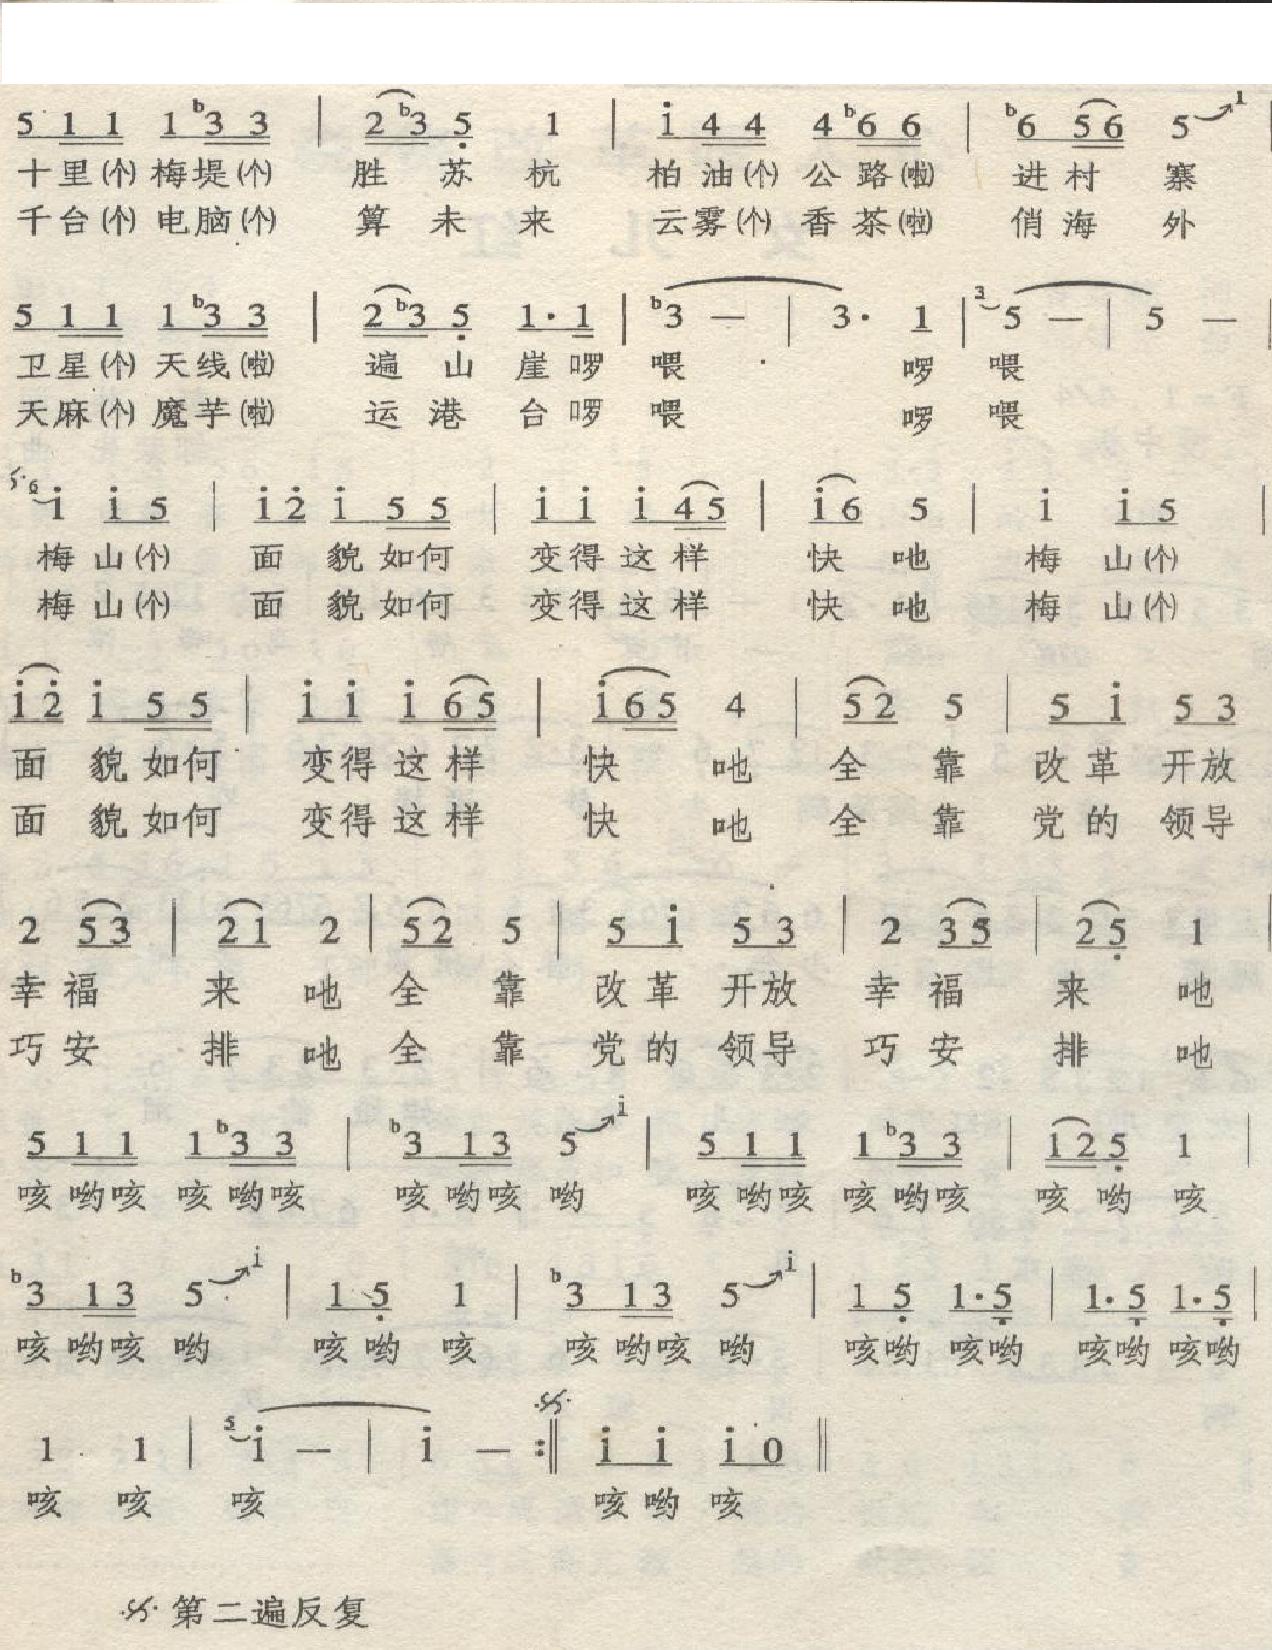 5 1 1 1 ♭3 3 | 2 ♭3 5 1 | i 4 4 4 ♭6 6 | ♭6 5 6 5 1
十里(个)梅堤(个) 胜 苏 杭 柏油(个)公路(啦) 进村 寨
千台(个)电脑(个) 算 未 来 云雾(个)香茶(啦) 俏海 外
5 1 1 1 ♭3 3 | 2 ♭3 5 1· 1 | ♭3 — | 3· 1 | 3 5 — | 5 —
卫星(个)天线(啦) 遍 山 崖啰 喂 啰 喂
天麻(个)魔芋(啦) 运 港 台啰 喂 啰 喂
5·6 i i 5 | i 2 i 5 5 | i i i 4 5 | i 6 5 | i i 5 |
梅山(个) 面 貌如何 变得这样 快 吔 梅 山(个)
梅山(个) 面 貌如何 变得这样 快 吔 梅 山(个)
i 2 i 5 5 | i i i 6 5 | i 6 5 4 | 5 2 5 | 5 i 5 3
面 貌如何 变得这样 快 吔 全 靠 改革 开放
面 貌如何 变得这样 快 吔 全 靠 党的 领导
2 5 3 | 2 1 2 | 5 2 5 | 5 i 5 3 | 2 3 5 | 2 5 1 |
幸福 来 吔 全 靠 改革 开放 幸 福 来 吔
巧安 排 吔 全 靠 党的 领导 巧 安 排 吔
5 1 1 1 ♭3 3 | ♭3 1 3 5 i | 5 1 1 1 ♭3 3 | 1 2 5 1 |
咳哟咳 咳哟咳 咳哟咳 哟 咳哟咳 咳哟咳 咳 哟 咳
♭3 1 3 5 i | 1 5 1 | ♭3 1 3 5 i | 1 5 1· 5 | 1· 5 1· 5 |
咳哟咳 哟 咳哟 咳 咳哟咳 哟 咳哟 咳哟 咳哟 咳哟
1 1 | 5 i — | i — :‖ i i i 0 ‖
咳 咳 咳 咳哟 咳
第二遍反复